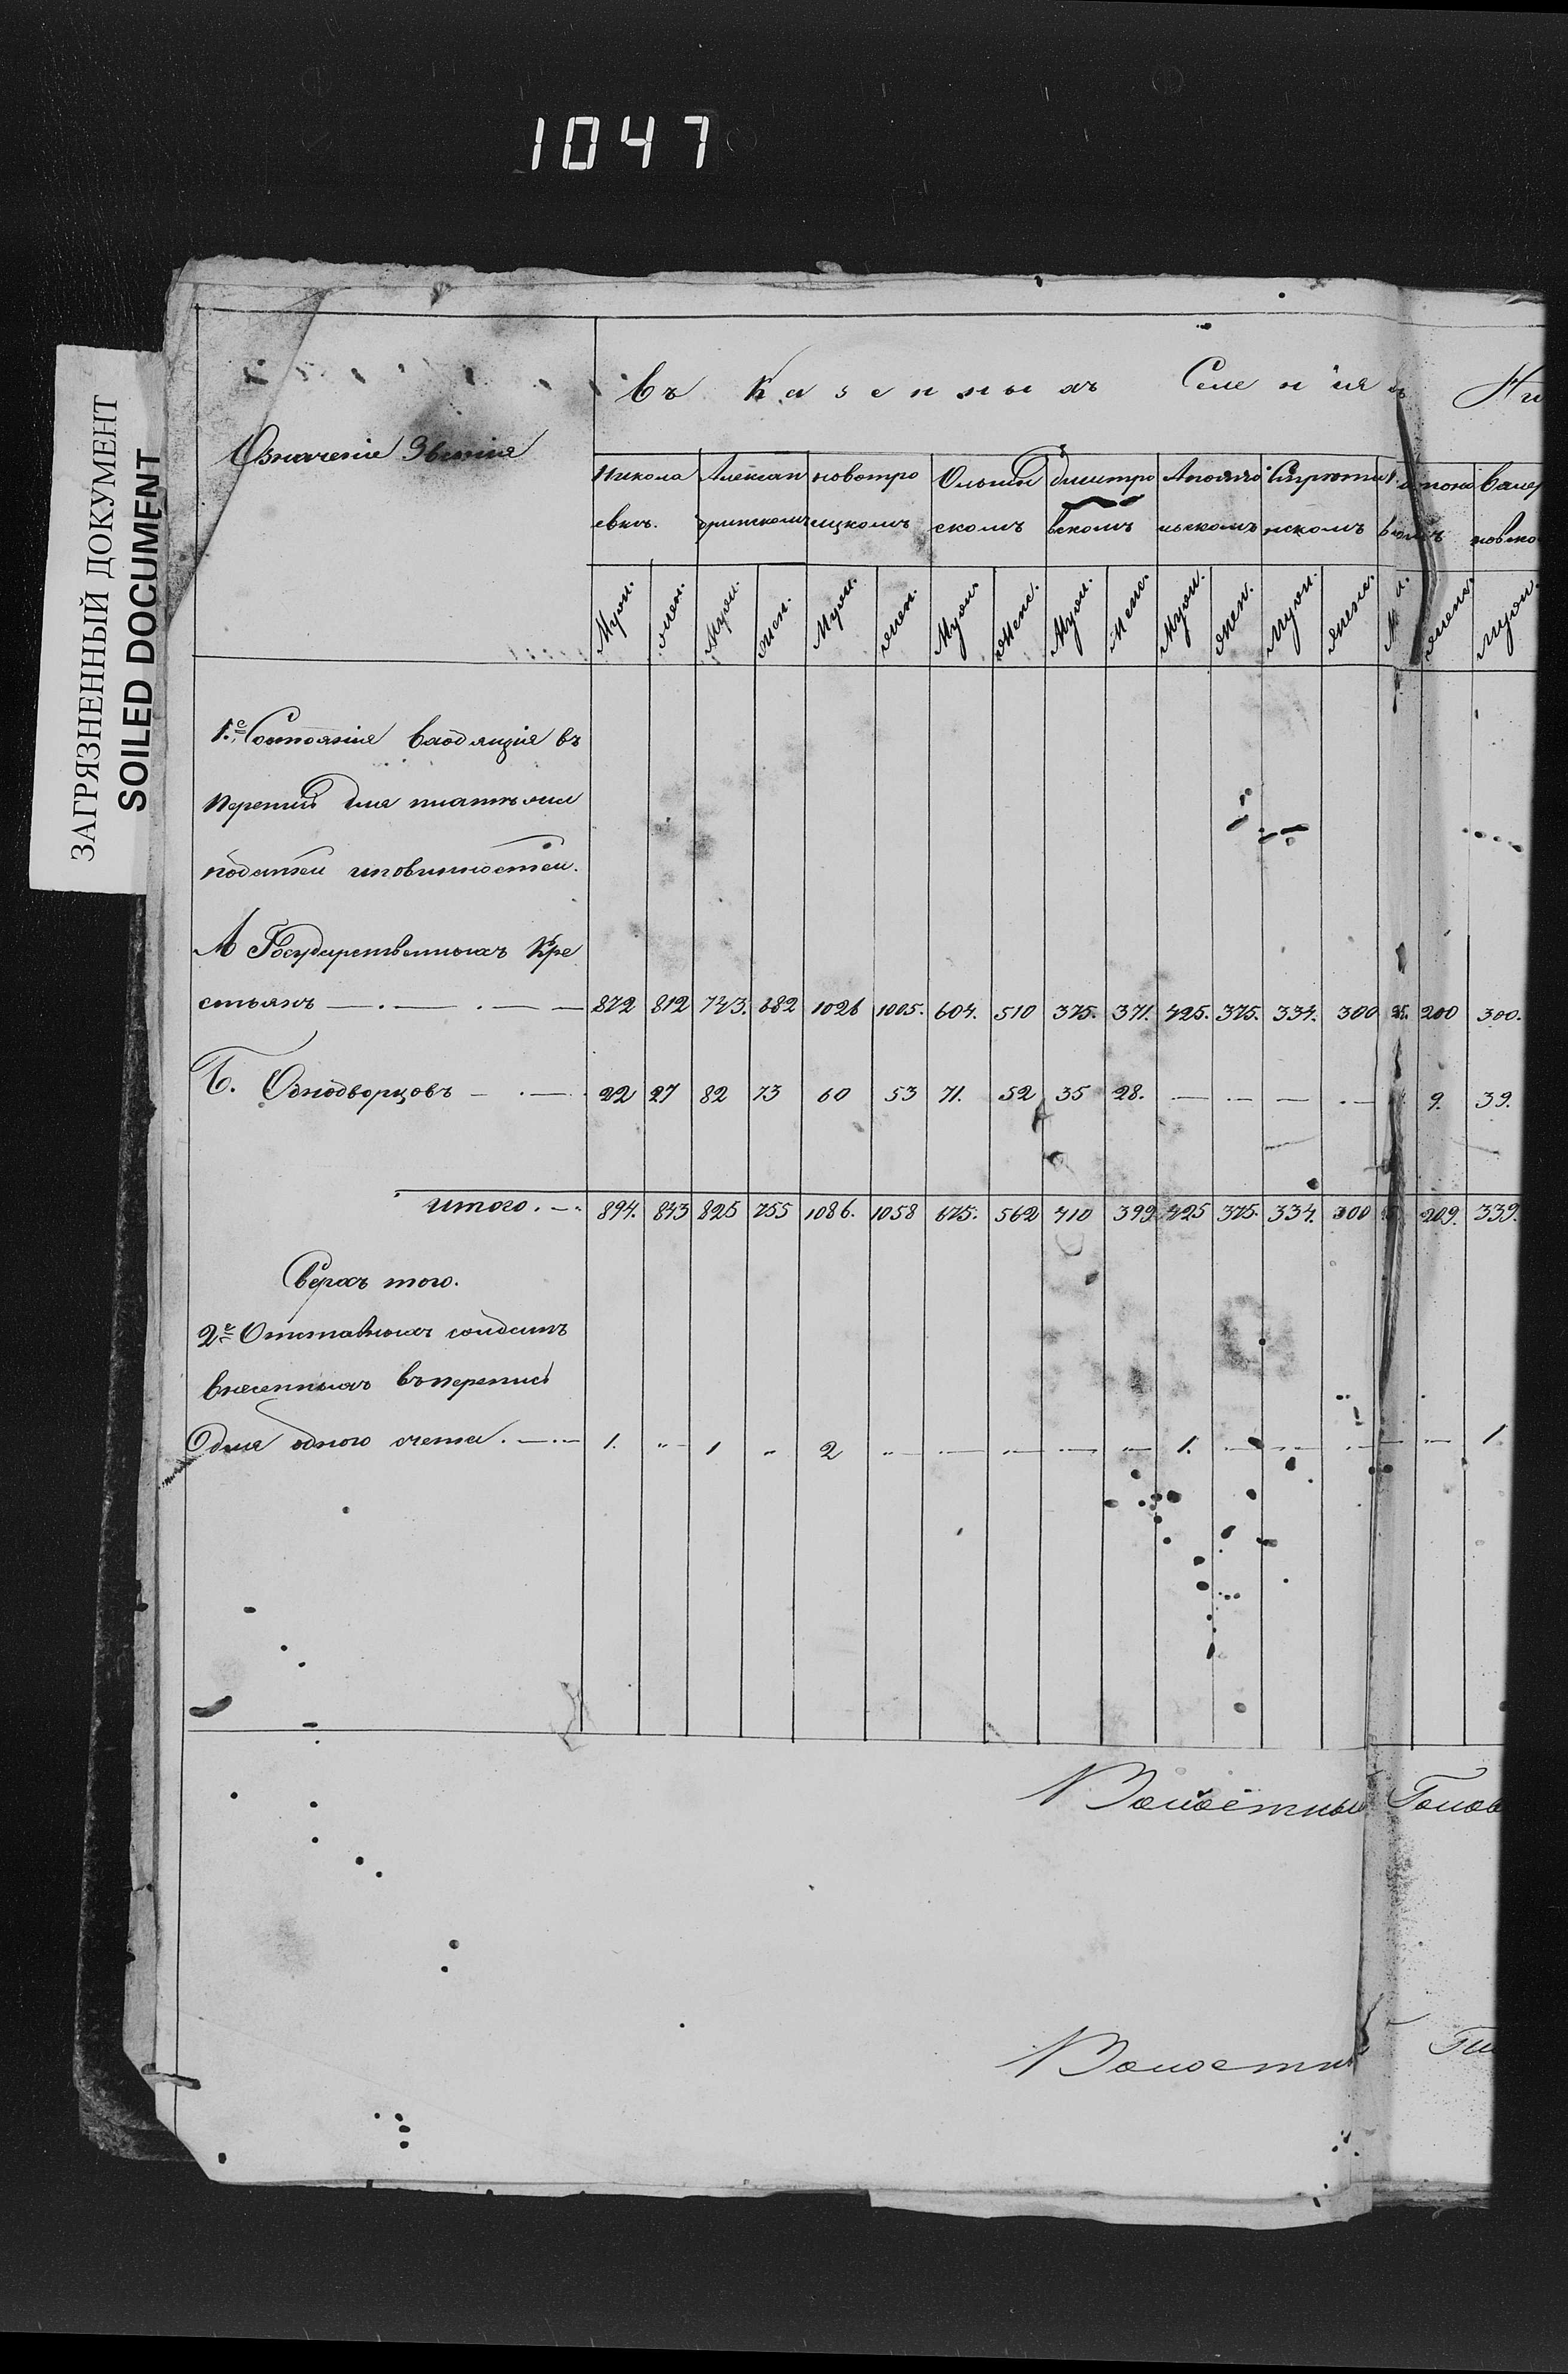 1047
ЗАГРЯЗНЕННЫЙ ДОКУМЕНТ
SOILED DOCUMENT
Означеніе Званія
Въ Казенныхъ Селеніяхъ
Никола Алексан новотро Ольшан дмитро
евкъ. дринскомъ ицкомъ скомъ вскомъ нскомъ
Муж. жен. Муж. жен. Муж. жен. Муж. Жен. Муж. Жен. Муж. жен. Муж. жен. М. жен. Муж.
1.е Состоянія входящія въ
перепись для платежа
податей и повинностей.
А Государственныхъ Кре
стьянъ — 872 812 743. 682 1026 1005. 604. 510 375. 371. 425. 375. 334. 300 200 300.
Б. Однодворцовъ — 22 27 82 73 60 53 71. 52 35 28. — — — — 9. 39.
итого. — 894. 843 825 755 1086. 1058 675. 562 410 399 425 375. 334. 300 209. 339.
Сверхъ того.
2е Отставныхъ солдатъ
внесенныхъ въ перепись
для одного счета. — 1. „ 1 „ 2 „ — — — — 1. — — — — — 1
Волостный Голов
Волостн